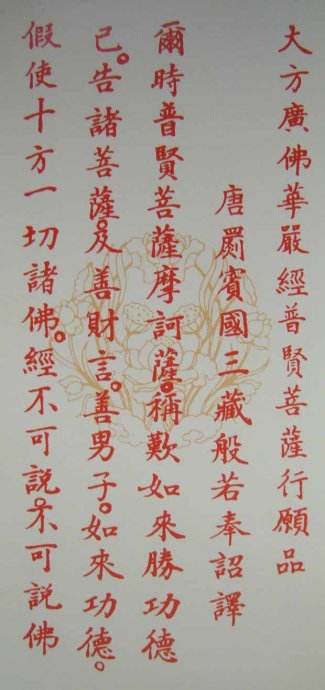 大方廣佛華嚴經普賢菩薩行願品
唐罽賓國三藏般若奉詔譯
爾時普賢菩薩摩訶薩。稱歎如來勝功德
已。告諸菩薩。及善財言。善男子。如來功德。
假使十方一切諸佛。經不可說。不可說佛